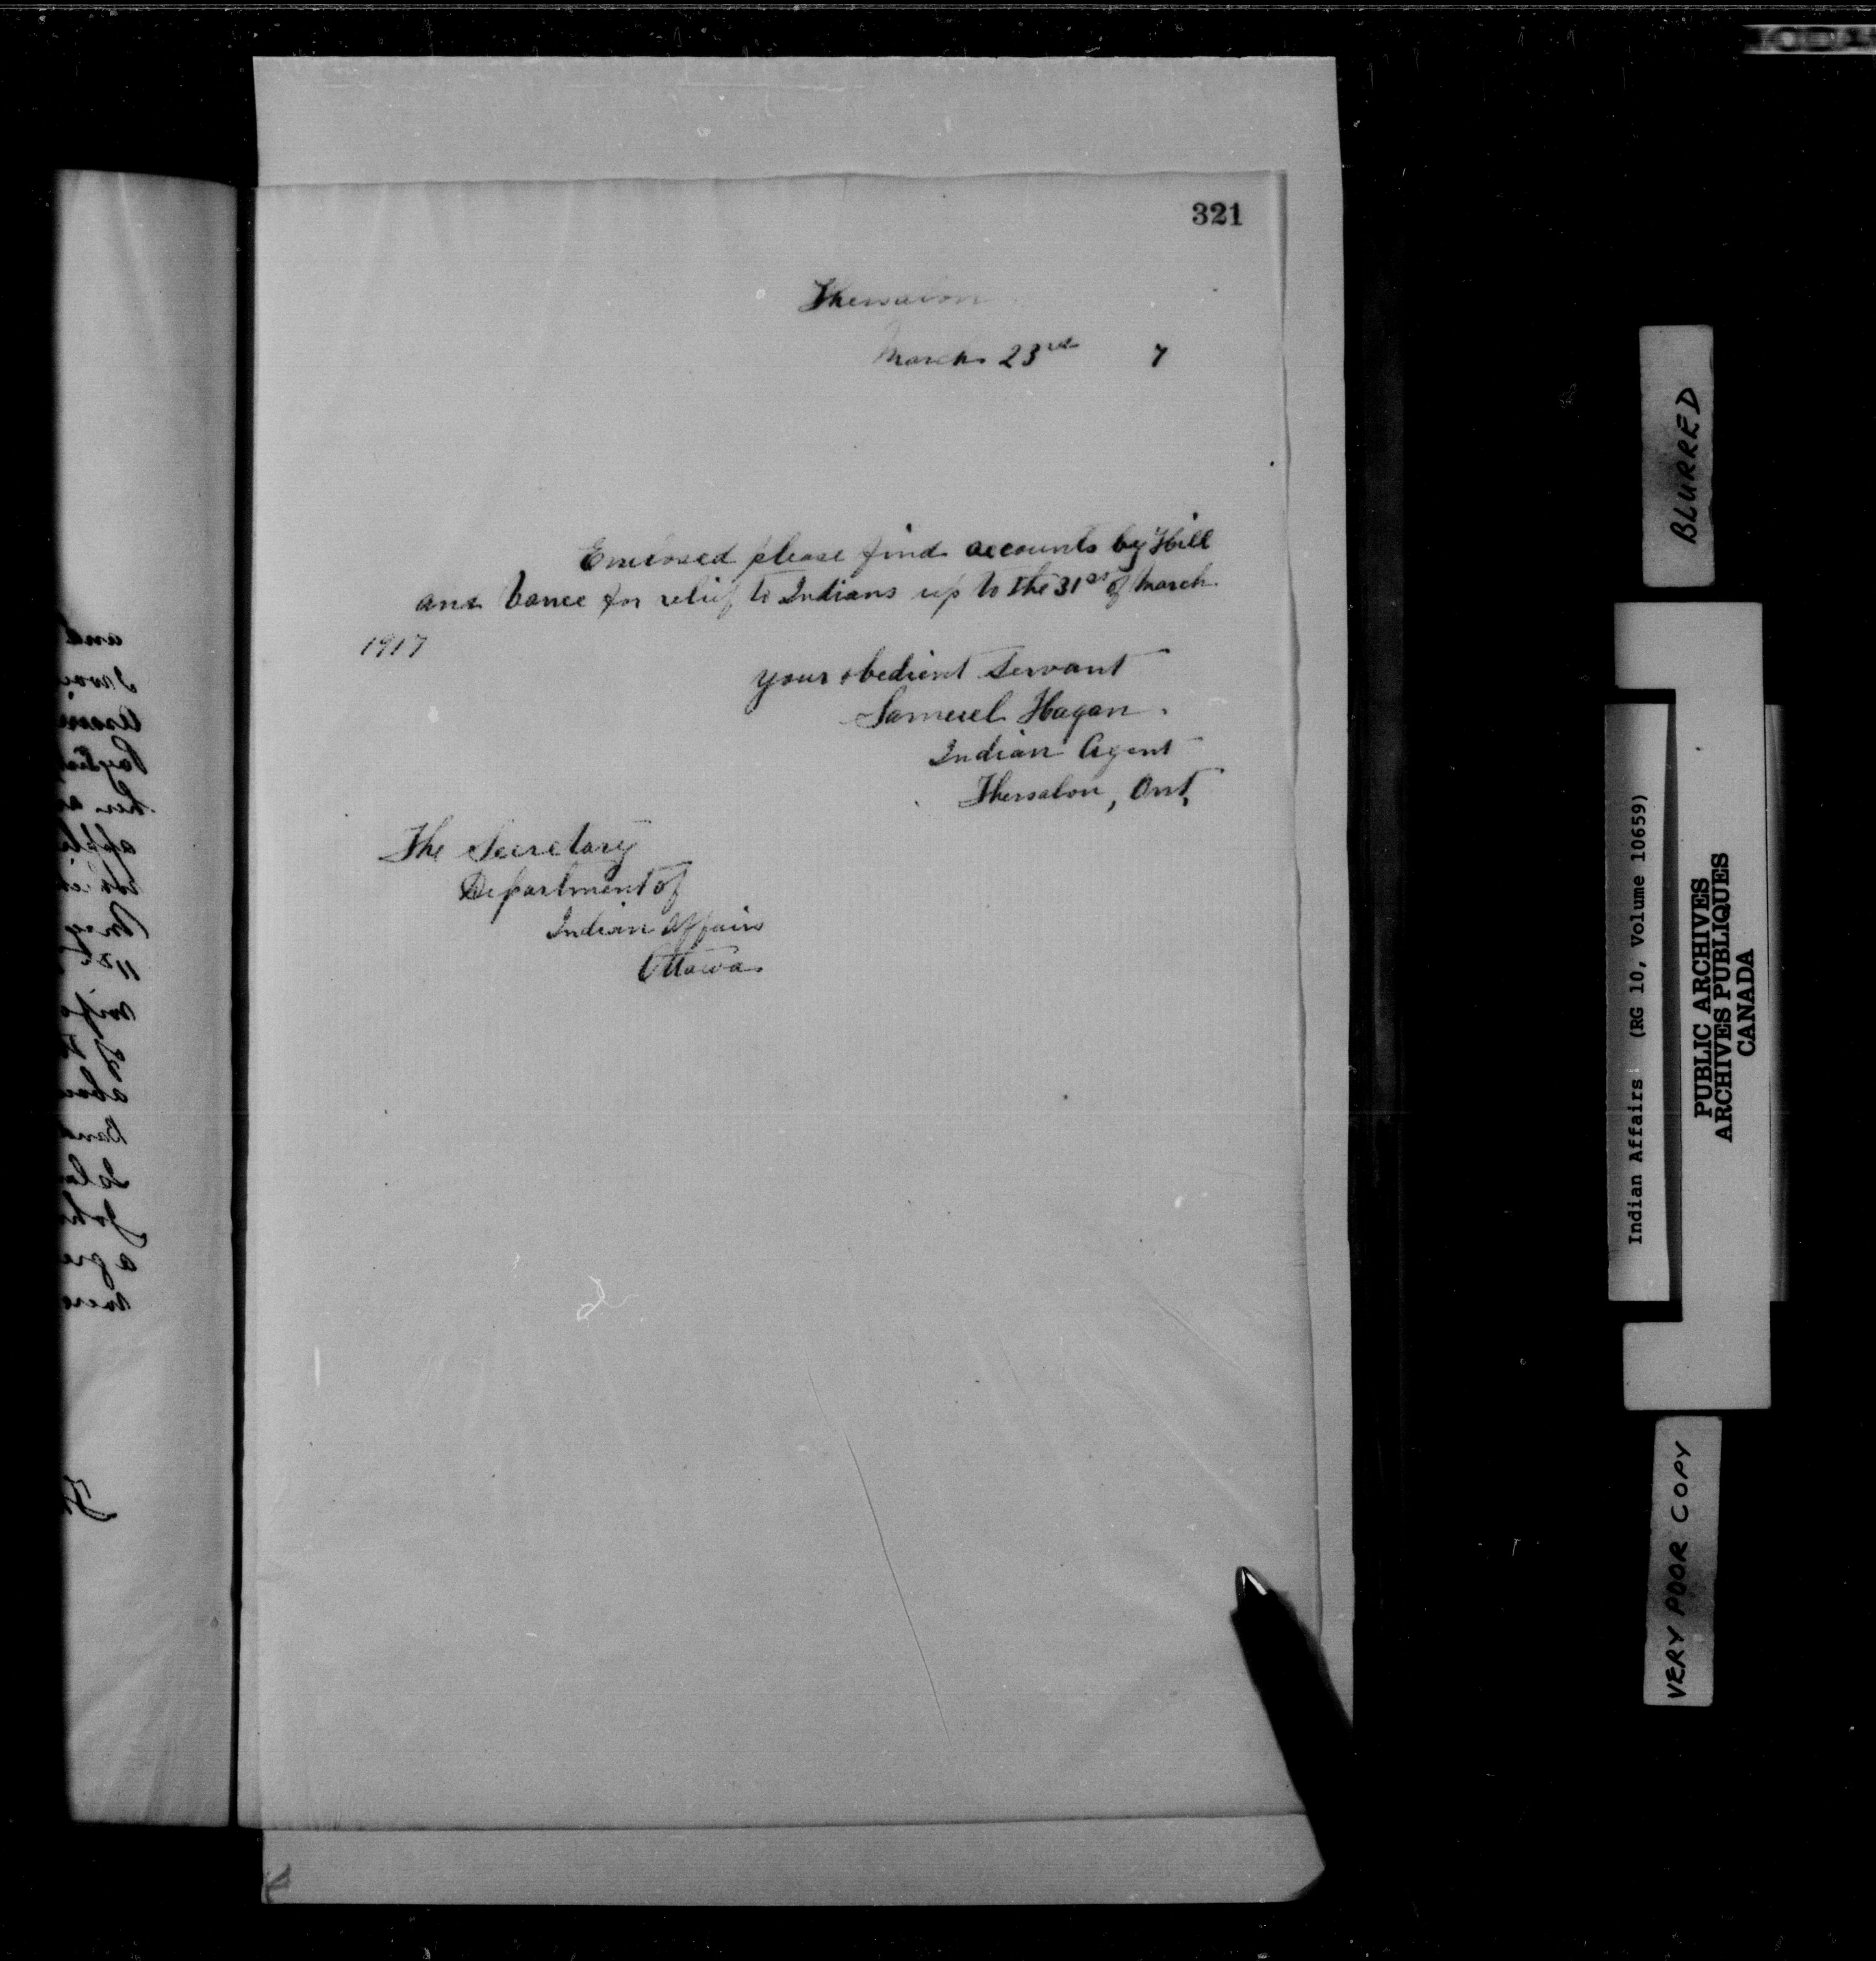 321
Thessalon
March 23rd 7
Enclosed please find accounts by Hill
and Vance for relief to Indians up to the 31st of March
1917
your obedient servant
Samuel Hagan.
Indian Agent
Thessalon, Ont,
The Secretary
Department of
Indian Affairs
Ottawa
BLURRED
Indian Affairs (RG 10, Volume 10659)
PUBLIC ARCHIVES
ARCHIVES PUBLIQUES
CANADA
VERY POOR COPY